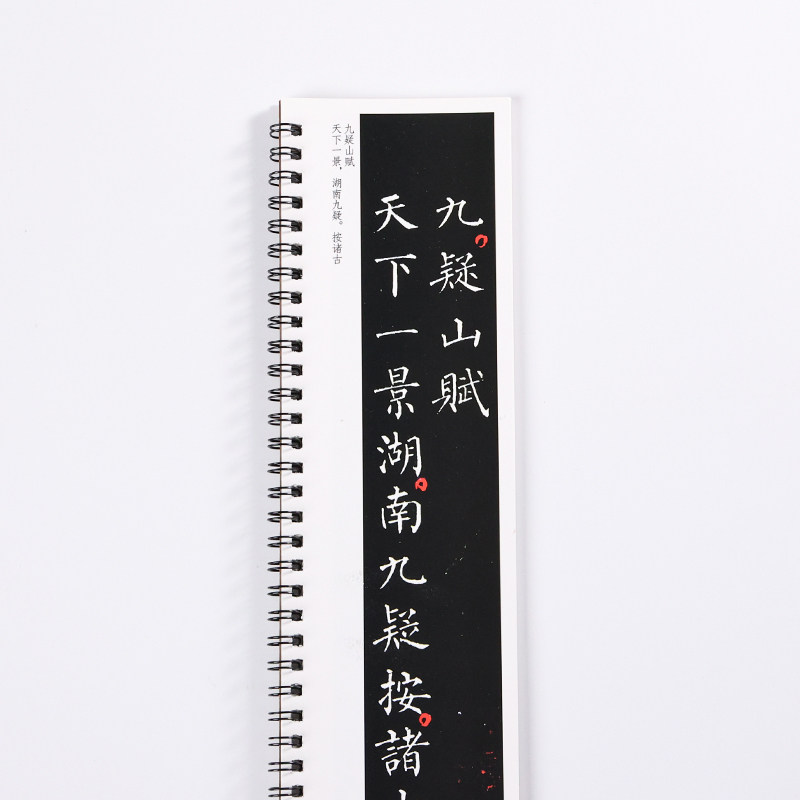 九疑山賦
天下一景湖南九疑按諸
九疑山赋
天下一景，湖南九疑。按诸古